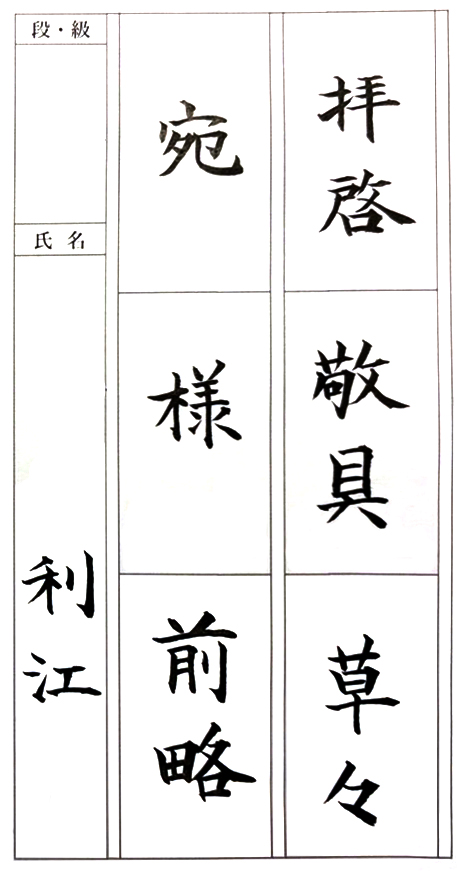 拝啓
敬具
草々
宛
様
前略
段・級
氏名
利江